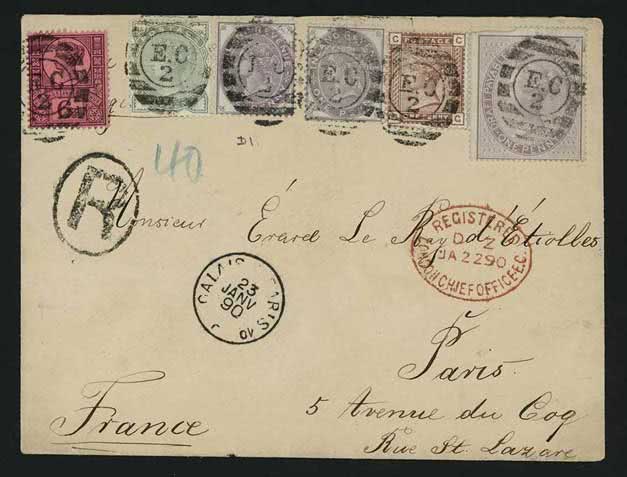 E.C
2
E.C
2
E.C
2
E.C
2
POSTAGE
C
C
E.C
2
ONE PENNY
40
D1
R
Monsieur Érard Le Roy d'Étiolles
REGISTERED
D Z
JA 22 90
LONDON CHIEF OFFICE E.C.
CALAIS PARIS
23
JANV
90
Paris
5 Avenue du Coq
France
Rue St. Lazare